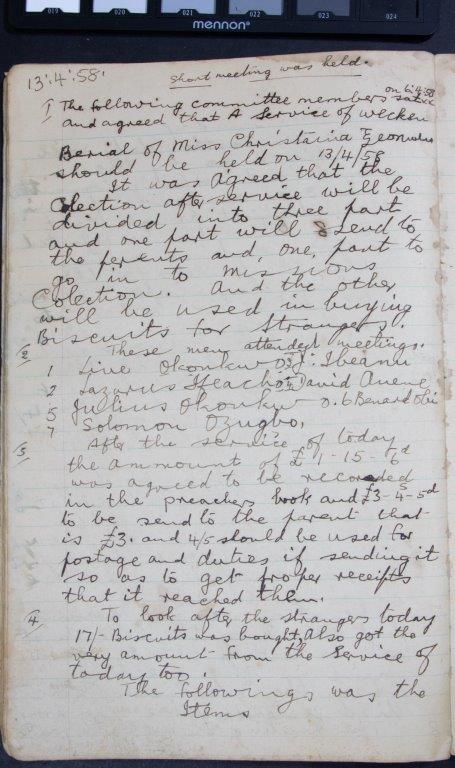 019 020 021 022 023 024
mennon
13:4:58.
Short meeting was held.
on 6:4:58
1 The following committee members
and agreed that A Service of
Berial of Miss Christaina
should be held on 13/4/58
It was agreed that the
Colection after service will be
divided in to three part
and one part will send to
the perents and, one, part to
go in to missions
Colection. And the other
will be used in buying
Biscuits for Strangers.
2 These men attended meetings.
1 Live Okonkwo J. Ibeanu
2 Lazarus David
5 Julius Okonkw 0.6 Benard Obi
7 Solomon Ozugbo.
3 After the service of today
the ammount of £1-15-6d
was agreed to be recorded
in the preachers book and £3-4s-5d
to be send to the parent that
is £3. and 4/5 should be used for
postage and duties if sending it
so as to get proper receipts
that it reached them.
4 To look after the strangers today
17/- Biscuits was bought, Also got the
very amount from the Service of
today too.
The followings was the
Items